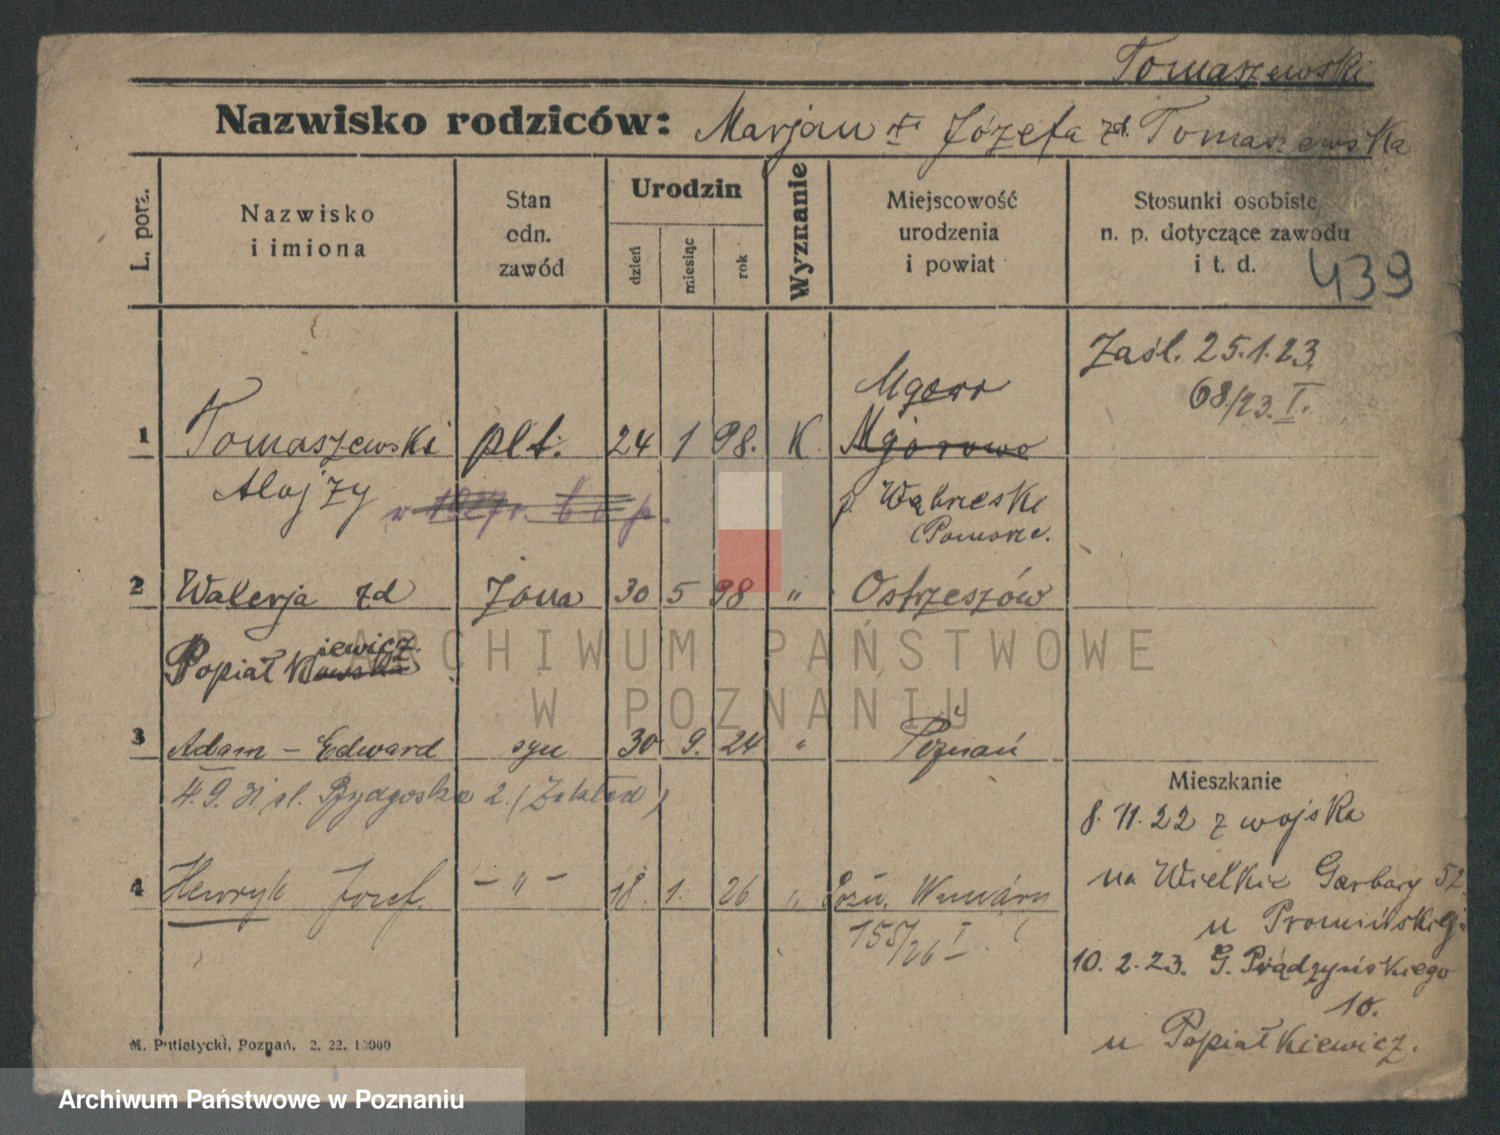 Tomaszewski
Nazwisko rodziców: Marjan i Józefa zd. Tomaszewska
L. porz.
Nazwisko i imiona
Stan odn. zawód
Urodzin
dzień miesiąc rok
Wyznanie
Miejscowość urodzenia i powiat
Stosunki osobiste n. p. dotyczące zawodu i t. d.
439
Zaśl. 25.1.23.
68/23. I.
Mgowo
1 Tomaszewski plt. 24 1 98. K. Mgorowo
Alojzy w 1927 r.
p. Wąbrzeski
(Pomorze.
2 Walerja zd żona 30 5 98 " Ostrzeszów
iewicz.
Popiałkowska
3 Adam - Edward syn 30 9. 24 " Poznań
4.9.31 pl. Bydgoska 2. (Zakład)
Mieszkanie
8.11.22 z wojska
4 Henryk Józef. - " - 18. 1. 26 " Pozn.
na Wielkie Garbary 52
155/26 I
u
10.2.23. G. Prądzyńskiego
10.
u Popiałkiewicz.
M. Putiatycki, Poznań. 2. 22. 10000
ARCHIWUM PAŃSTWOWE
W POZNANIU
Archiwum Państwowe w Poznaniu